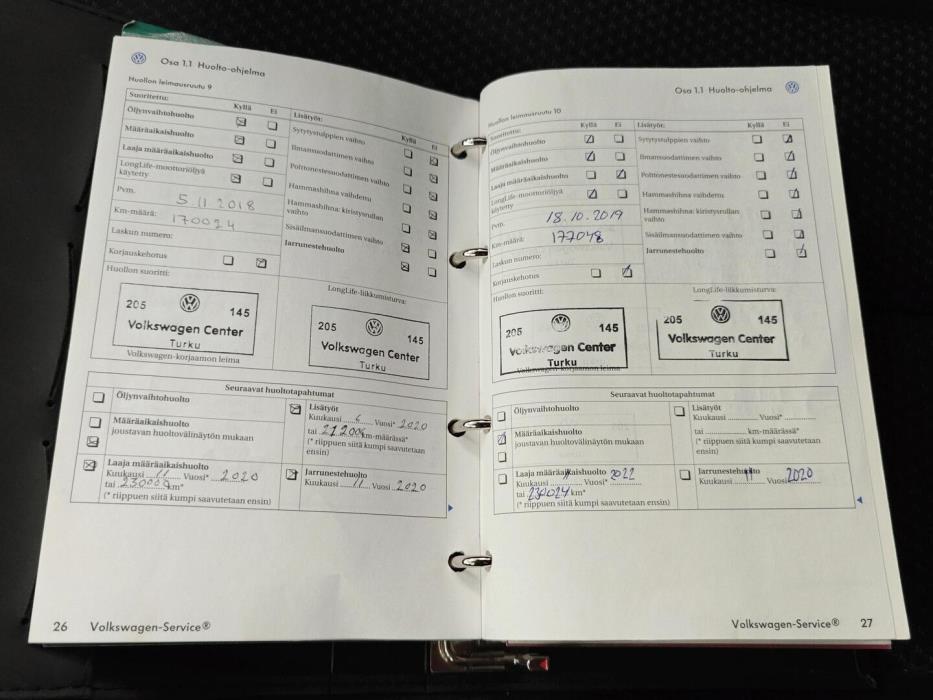 Osa 1.1 Huolto-ohjelma
Huollon leimausruutu 9
Suoritettu:
Kyllä
Ei
Öljynvaihtohuolto
Määräaikaishuolto
Laaja määräaikaishuolto
LongLife-moottoriöljyä
käytetty
Pvm.
5 11 2018
Km-määrä:
170024
Laskun numero:
Korjauskehotus
Huollon suoritti:
Lisätyöt:
Kyllä
Ei
Sytytystulppien vaihto
Ilmansuodattimen vaihto
Polttonestesuodattimen vaihto
Hammashihna vaihdettu
Hammashihna: kiristysrullan
vaihto
Sisäilmansuodattimen vaihto
Jarrunestehuolto
LongLife-liikkumisturva:
205
145
Volkswagen Center
Turku
Volkswagen-korjaamon leima
205
145
Volkswagen Center
Turku
Seuraavat huoltotapahtumat
Öljynvaihtohuolto
Määräaikaishuolto
joustavan huoltovälinäytön mukaan
Laaja määräaikaishuolto
Kuukausi 11 Vuosi* 2020
tai 230000 km*
(* riippuen siitä kumpi saavutetaan ensin)
Lisätyöt
Kuukausi 6 Vuosi* 2020
tai km-määrässä*
(* riippuen siitä kumpi saavutetaan
ensin)
Jarrunestehuolto
Kuukausi 11 Vuosi 2020
26 Volkswagen-Service®
Osa 1.1 Huolto-ohjelma
Huollon leimausruutu 10
Suoritettu:
Kyllä
Ei
Öljynvaihtohuolto
Määräaikaishuolto
Laaja määräaikaishuolto
LongLife-moottoriöljyä
käytetty
Pvm.
18.10.2019
Km-määrä:
177048
Laskun numero:
Korjauskehotus
Huollon suoritti:
Lisätyöt:
Kyllä
Ei
Sytytystulppien vaihto
Ilmansuodattimen vaihto
Polttonestesuodattimen vaihto
Hammashihna vaihdettu
Hammashihna: kiristysrullan
vaihto
Sisäilmansuodattimen vaihto
Jarrunestehuolto
LongLife-liikkumisturva:
205
145
Volkswagen Center
Turku
Volkswagen-korjaamon leima
205
145
Volkswagen Center
Turku
Seuraavat huoltotapahtumat
Öljynvaihtohuolto
Määräaikaishuolto
joustavan huoltovälinäytön mukaan
Laaja määräaikaishuolto
Kuukausi 11 Vuosi* 2022
tai 230024 km*
(* riippuen siitä kumpi saavutetaan ensin)
Lisätyöt
Kuukausi Vuosi*
tai km-määrässä*
(* riippuen siitä kumpi saavutetaan
ensin)
Jarrunestehuolto
Kuukausi 11 Vuosi 2020
Volkswagen-Service® 27